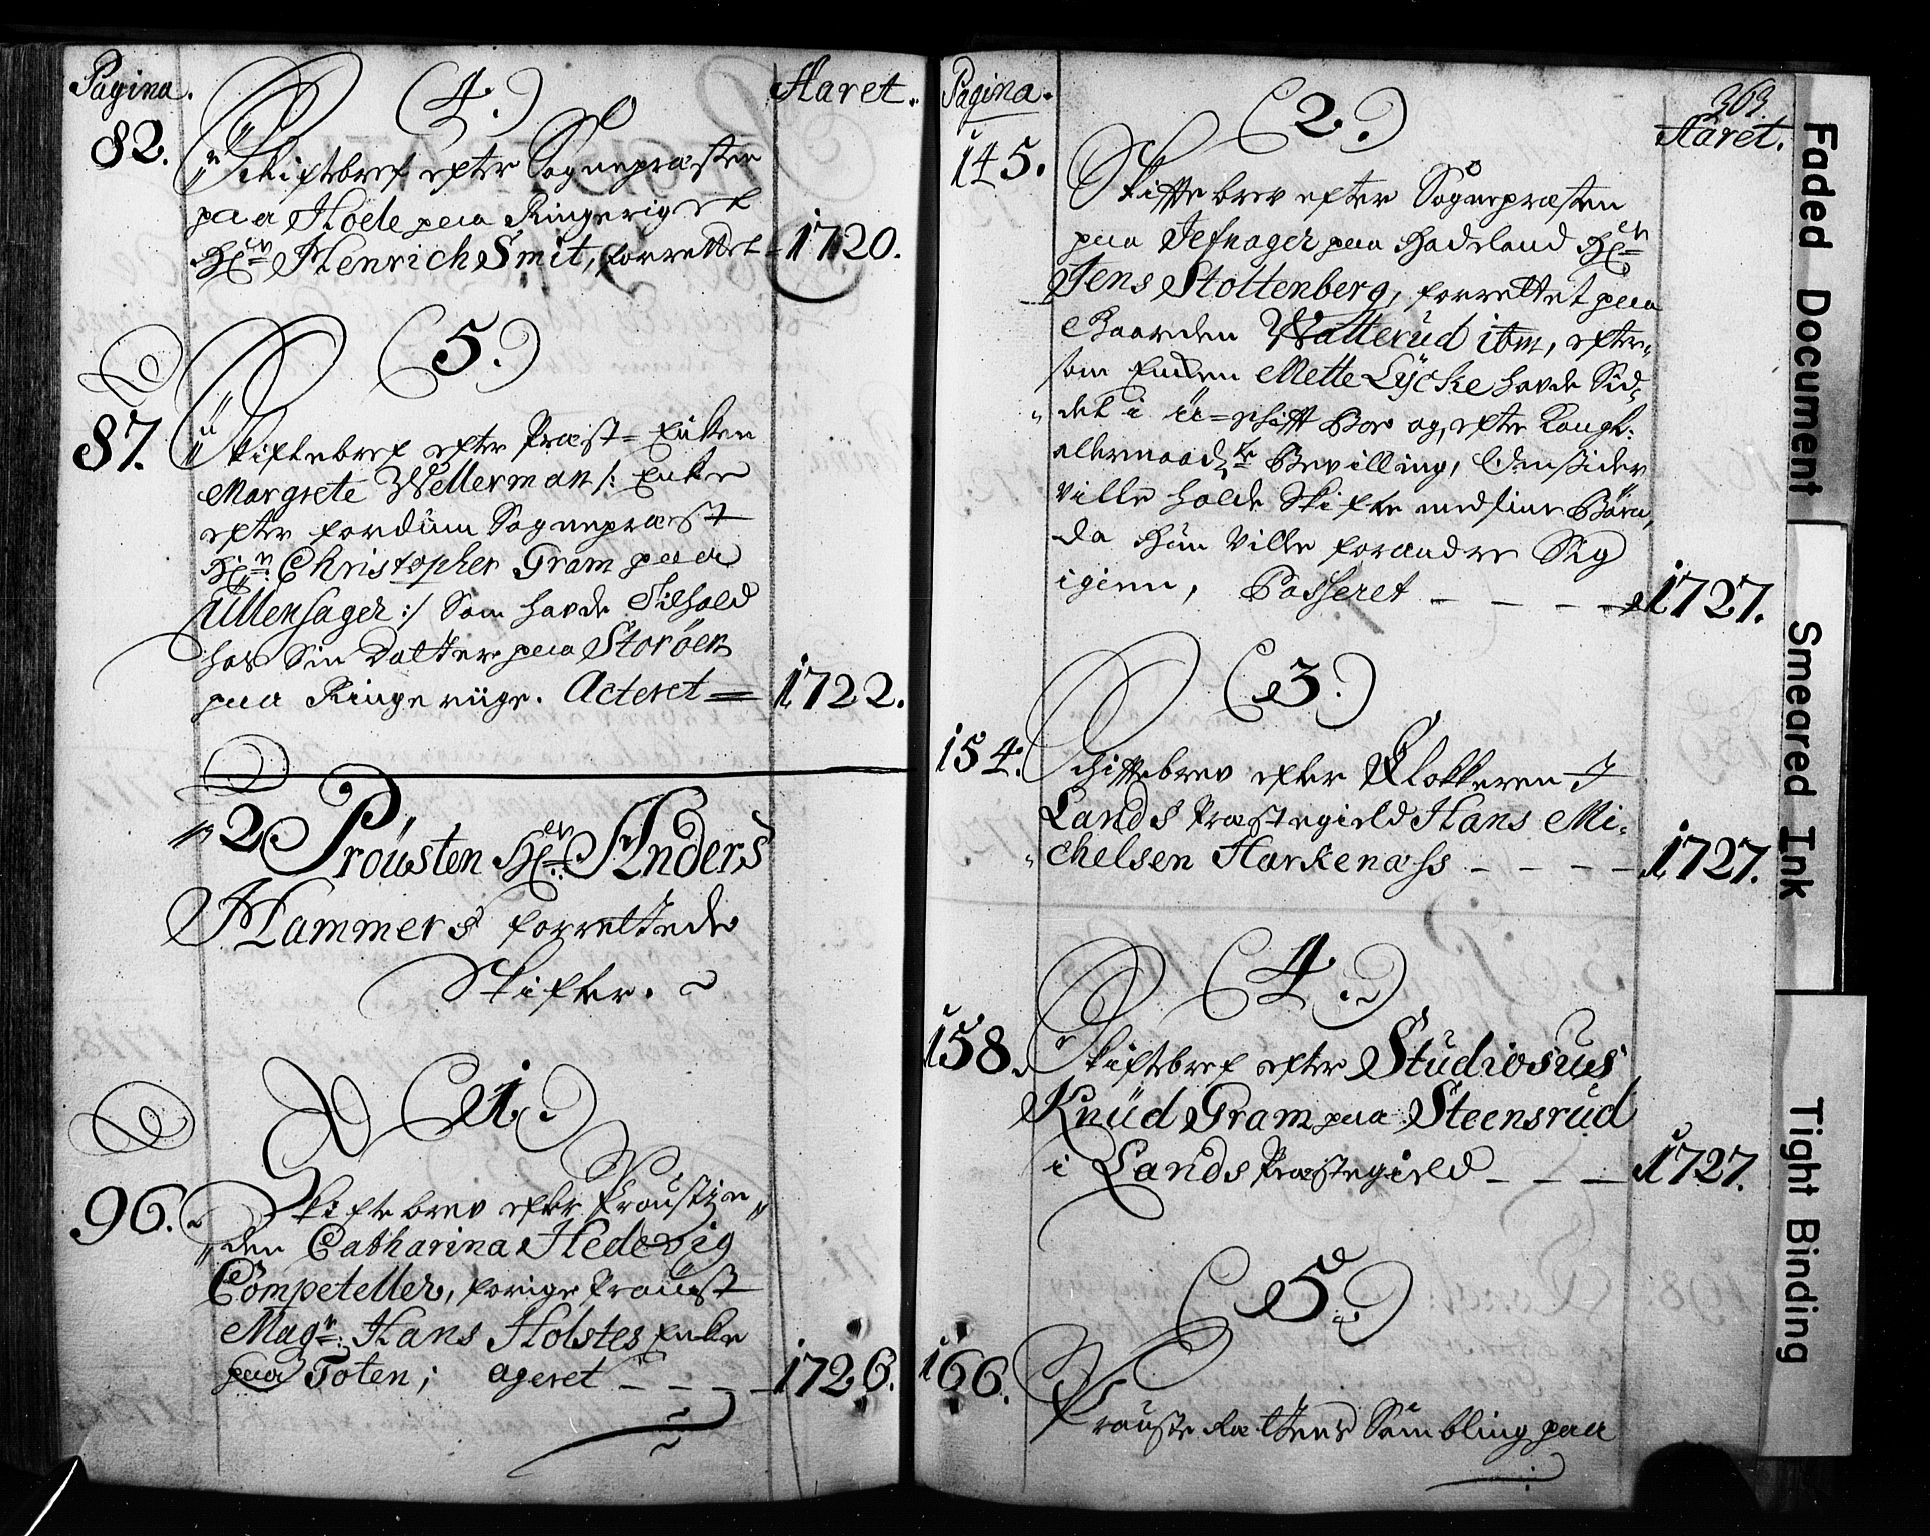 Pagina.
Aaret.
(4.)
82.
Skiftebref efter Sognepræsten
paa Hoele paa Ringerige et
Hr. Henrich Smit, forrettet - 1720.
(5.)
87.
Skiftebref efter Præst-Enken
Margrete Wellerman /: Enke
efter fordum Sognepræst
Hr. Christopher Gram paa
Ullensager :/ Som hafde Tilhold
hos Sin Datter paa Storöen
paa Ringeriige. Acteret = 1722.
2 Proüsten Hr. Anders
Hammers forrettede
Skifter.
(1.)
96.
Skiftebrev efter Proustin-
den Catharina Hedevig
Competeller, forige Proust
Magr. Hans Holstes Enke
paa Toten; ageret - - - - 1726.
Pagina.
363.
Aaret.
(2.)
145.
Skiftebrev efter Sognepræsten
paa Jefnager paa Hadeland Hr.
Jens Stoltenberg, forrettet paa
Gaarden Watterud ibm, efter-
som Enken Mette Lÿcke havde Sid-
det i u-skifft Boe og, efter Kongl:
allernaadste Bevilling, Omsider
ville holde Skifte med sine Börn,
da Hun ville forandre Sig
igien, Passeret - - - - 1727.
(3.)
154.
Schiftebrev efter Klokkeren I
Lands Præstegield Hans Mi-
chelsen Harkenass - - - - 1727.
(4.)
158.
Skiftebref efter Studiosus
Knüd Gram paa Steensrud
i Lands Præstegield - - - 1727.
(5.)
166.
Prouste Rettens Sambling paa
Faded Document
Smeared Ink
Tight Binding